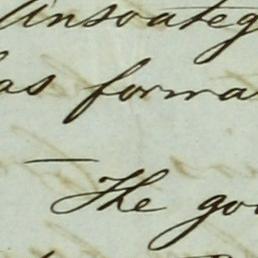 Unsoateg
as forma
— The go